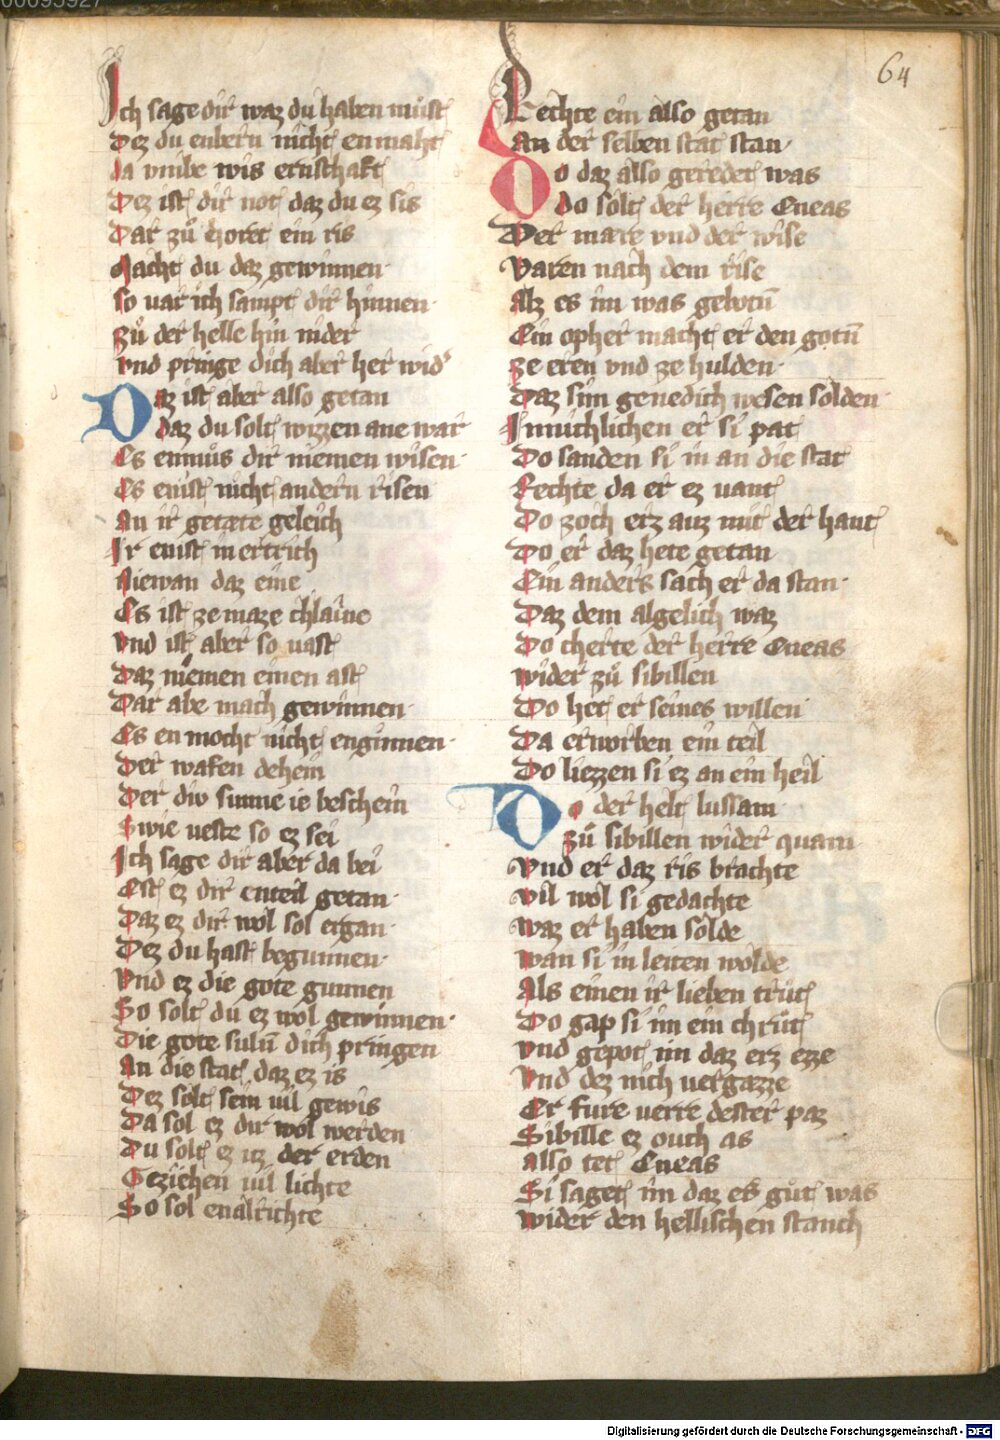 00095927
64
Ich sage dir waz du haben must
Dez du enbern nicht enmaht
da vmbe wis ernschaft
Dez ist dir not daz du ez sis
Dar zů horet ein ris
Macht du daz gewinnen
so uar ich sampt dir hinnen
zů der helle hin nider
vnd pringe dich aber her wid
Daz ist aber also getan
daz du solt wizzen ane war
Es enmůs dir niemen wisen
Es enist nicht andern risen
An ir getæte geleich
Ir enist in ertrich
Niewan daz eine
Es ist ze maze chlaine
vnd ist aber so uast
Daz niemen einen ast
Dar abe mach gewinnen
Es en mocht nicht enginnen
Der wafen dehein
Der div sunne ie beschein
Swie ueste so ez sei
Ich sage dir aber da bei
Est ez dir enteil getan
Daz ez dir wol sol ergan
Dez du hast begunnen
Vnd ez die gote gunnen
So solt du ez wol gewinnen
Die gote suln dich pringen
An die stat daz ez is
Dez solt sein uil gewis
Da sol ez dir wol werden
Du solt ez uz der erden
Geziehen uil lichte
So sol enalrichte
Rechte ein also getan
An der selben stat stan
Do daz also geredet was
do solt der herre Eneas
Der mære vnd der wise
Varen nach dem rise
Alz es im was geboten
Ein opher macht er den goten
ze eren vnd ze hulden
Daz sim genedich wesen solden
Inniuchlichen er si pat
Do sanden si in an die stat
Rechte da er ez uant
Do zoch erz auz mit der hant
Do er daz hete getan
Ein anders sach er da stan
Daz dem algelich waz
Do cherte der herre Eneas
wider zů sibillen
Do het er seines willen
Da erworben ein teil
Do liezzen si ez an ein heil
Do der helt lussam
zů sibillen wider quam
Vnd er daz ris brachte
vil wol si gedachte
waz er haben solde
wan si in leiten wolde
Als einen ir lieben trůt
Do gap si im ein chrůt
vnd gepot im daz erz ezze
Vnd dez nich uergazze
Er fure uerre dester paz
Sibille ez ouch as
also tet Eneas
Si saget im daz es gůt was
wider den hellischen stanch
Digitalisierung gefördert durch die Deutsche Forschungsgemeinschaft - DFG